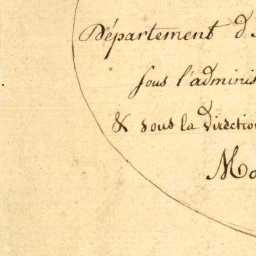 Département d
sous l'adminis
& sous la direction
Mo